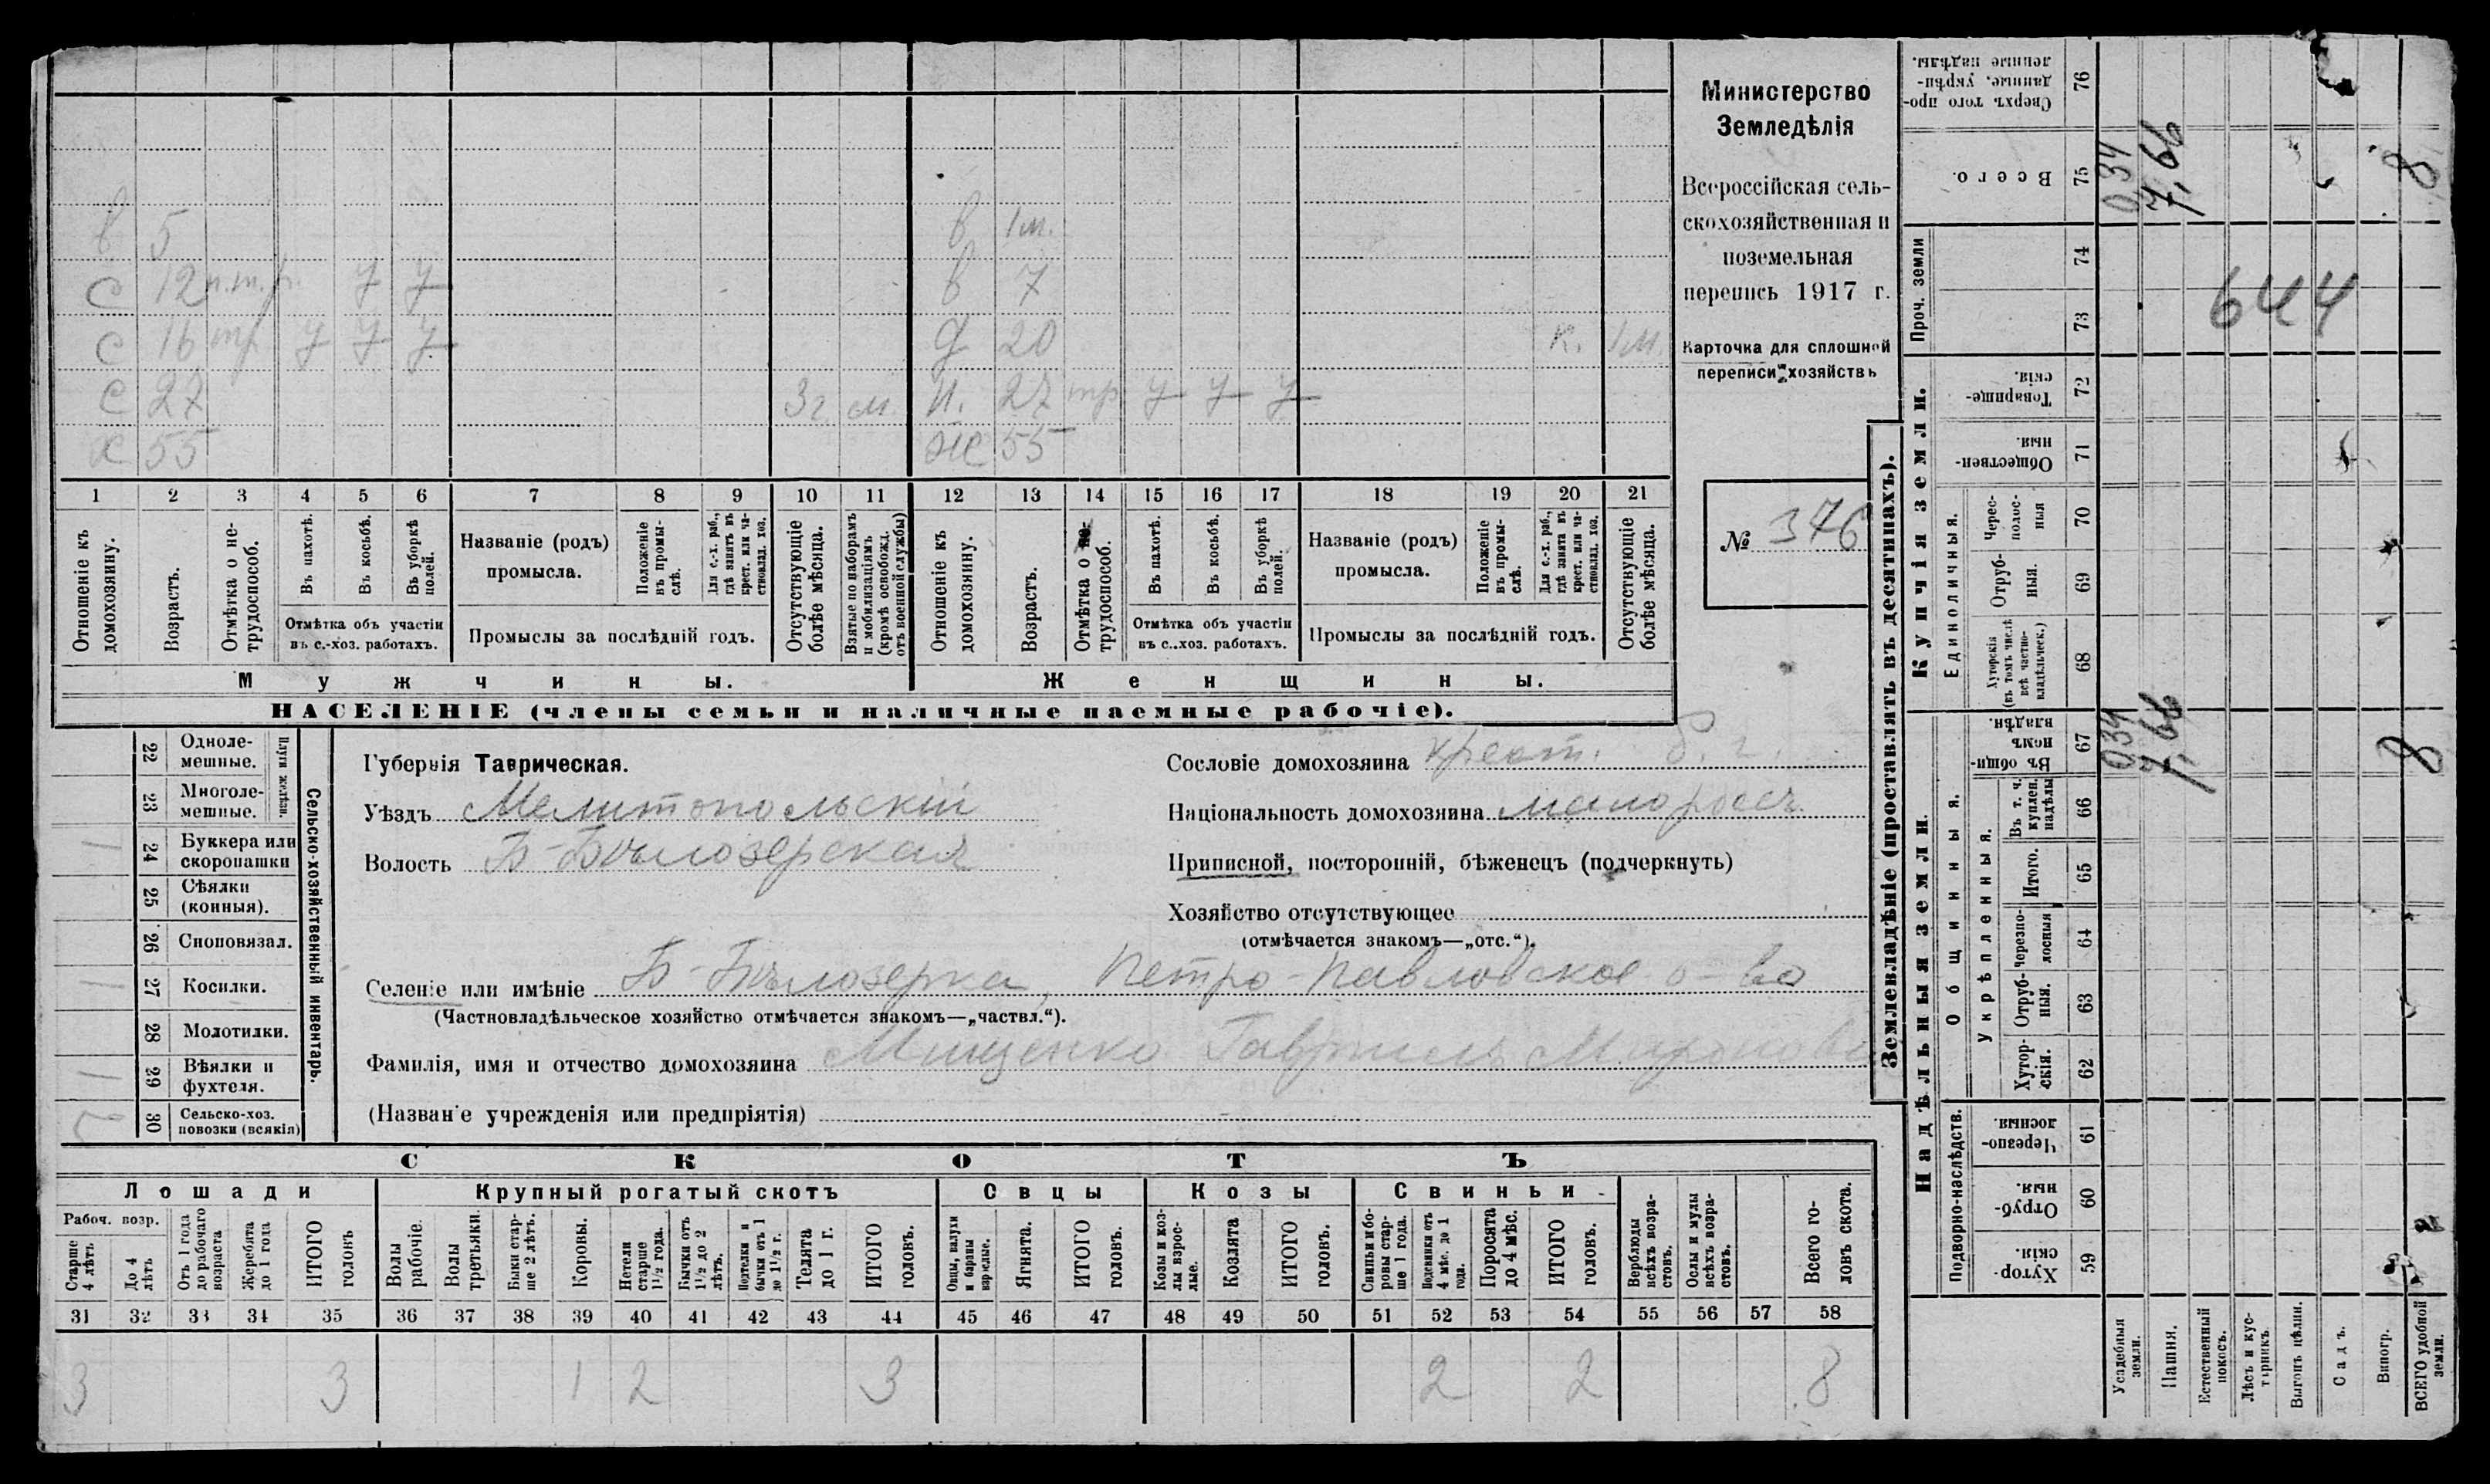 Министерство
Земледѣлія
Всероссійская сель-
скохозяйственная и
поземельная
перепись 1917 г.
Карточка для сплошной
переписи хозяйствъ
№ 376
в 5 в 1 м.
с 12 п.т.р. у у в 7
с 16 тр у у у д 20 к. 1 м.
с 27 3 г. м. н. 27 тр у у у
х 55 ж 55
1 2 3 4 5 6 7 8 9 10 11 12 13 14 15 16 17 18 19 20 21
Отношеніе къ домохозяину.
Возрастъ.
Отмѣтка о не-трудоспособ.
Въ пахотѣ.
Въ косьбѣ.
Въ уборкѣ полей.
Отмѣтка объ участіи
въ с.-хоз. работахъ.
Названіе (родъ)
промысла.
Положеніе въ промы-слѣ.
Для с.-х. раб., гдѣ занятъ въ крест. или ча-стновлад. хоз.
Промыслы за послѣдній годъ.
Отсутствующіе болѣе мѣсяца.
Взятые по наборамъ и мобилизаціямъ (кромѣ освобожд. отъ военной службы)
Отношеніе къ домохозяину.
Возрастъ.
Отмѣтка о не-трудоспособ.
Въ пахотѣ.
Въ косьбѣ.
Въ уборкѣ полей.
Отмѣтка объ участіи
въ с..хоз. работахъ.
Названіе (родъ)
промысла.
Положеніе въ промы-слѣ.
Для с.-х. раб., гдѣ занята въ крест. или ча-стновлад. хоз.
Промыслы за послѣдній годъ.
Отсутствующіе болѣе мѣсяца.
Мужчины. Женщины.
НАСЕЛЕНІЕ (члены семьи и наличные наемные рабочіе).
Сельско-хозяйственный инвентарь.
Плуги желѣзн.
22 Одноле-мешные.
23 Многоле-мешные.
24 Буккера или скоропашки
25 Сѣялки (конныя).
26 Сноповязал.
27 Косилки.
28 Молотилки.
29 Вѣялки и фухтеля.
30 Сельско-хоз. повозки (всякія)
Губернія Таврическая.
Уѣздъ Мелитопольскій
Волость Б-Бѣлозерская
Сословіе домохозяина крест.
Національность домохозяина малороссъ
Приписной, посторонній, бѣженецъ (подчеркнуть)
Хозяйство отсутствующее
(отмѣчается знакомъ—„отс.“).
Селеніе или имѣніе Б-Бѣлозерка, Петро-Павловское о-во
(Частновладѣльческое хозяйство отмѣчается знакомъ—„частвл.“).
Фамилія, имя и отчество домохозяина Мищенко Гавриилъ
(Названіе учрежденія или предпріятія)
СКОТЪ
Лошади Крупный рогатый скотъ Овцы Козы Свиньи
Рабоч. возр.
Старше 4 лѣтъ
До 4 лѣтъ
Отъ 1 года до рабочаго возраста
Жеребята до 1 года
ИТОГО головъ
Волы рабочіе.
Волы третьяки.
Быки стар-ше 2 лѣтъ.
Коровы.
Нетели старше 1½ года.
Бычки отъ 1½ до 2 лѣтъ.
Подтелки и бычки отъ 1 до 1½ г.
Телята до 1 г.
ИТОГО головъ.
Овцы, валухи и бараны взрослые.
Ягнята.
ИТОГО головъ.
Козы и коз-лы взрос-лые.
Козлята
ИТОГО головъ.
Свиньи и бо-ровы стар-ше 1 года.
Подсвинки отъ 4 мѣс. до 1 года.
Поросята до 4 мѣс.
ИТОГО головъ.
Верблюды всѣхъ возра-стовъ.
Ослы и мулы всѣхъ возра-стовъ.
Всего го-ловъ скота.
31 32 33 34 35 36 37 38 39 40 41 42 43 44 45 46 47 48 49 50 51 52 53 54 55 56 57 58
3 3 1 2 3 2 2 8
Землевладѣніе (проставлять въ десятинахъ).
Надѣльныя земли.
Купчія земли.
Проч. земли
Подворно-наслѣдств.
Общинныя.
Укрѣпленныя.
Единоличныя.
Сверхъ того про-данные, укрѣп-ленные надѣлы. 76
Всего. 75
74
73
Товарище-скія. 72
Обществен-ныя. 71
Черес-полос-ныя 70
Отруб-ныя. 69
Хуторскія (въ томъ числѣ всѣ частно-владѣльческ.) 68
Въ общи-номъ владѣн. 67
Въ т. ч. куплен. надѣлы 66
Итого. 65
Черезпо-лосныя 64
Отруб-ныя. 63
Хутор-скія. 62
Черезпо-лосныя. 61
Отруб-ныя. 60
Хутор-скія. 59
034 7,66 8
644
034 7,66 8
Усадебныя земли.
Пашня.
Естественный покосъ.
Лѣсъ и кус-тарникъ.
Выгонъ цѣлин.
Садъ.
Виногр.
ВСЕГО удобной земли.